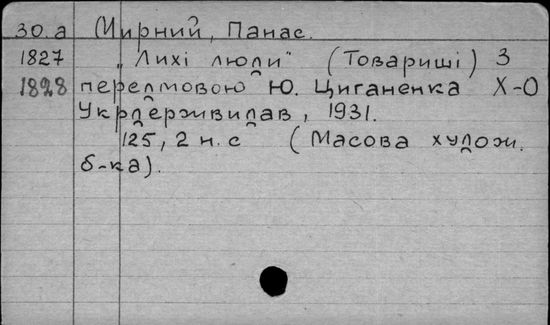 30.а Мирний, Панас.
1827 „Лихі люди" (Товариші) З
1828 передмовою Ю. Циганенка Х-О
Укрдержвидав, 1931.
125, 2 н.с (Масова худож.
б-ка).